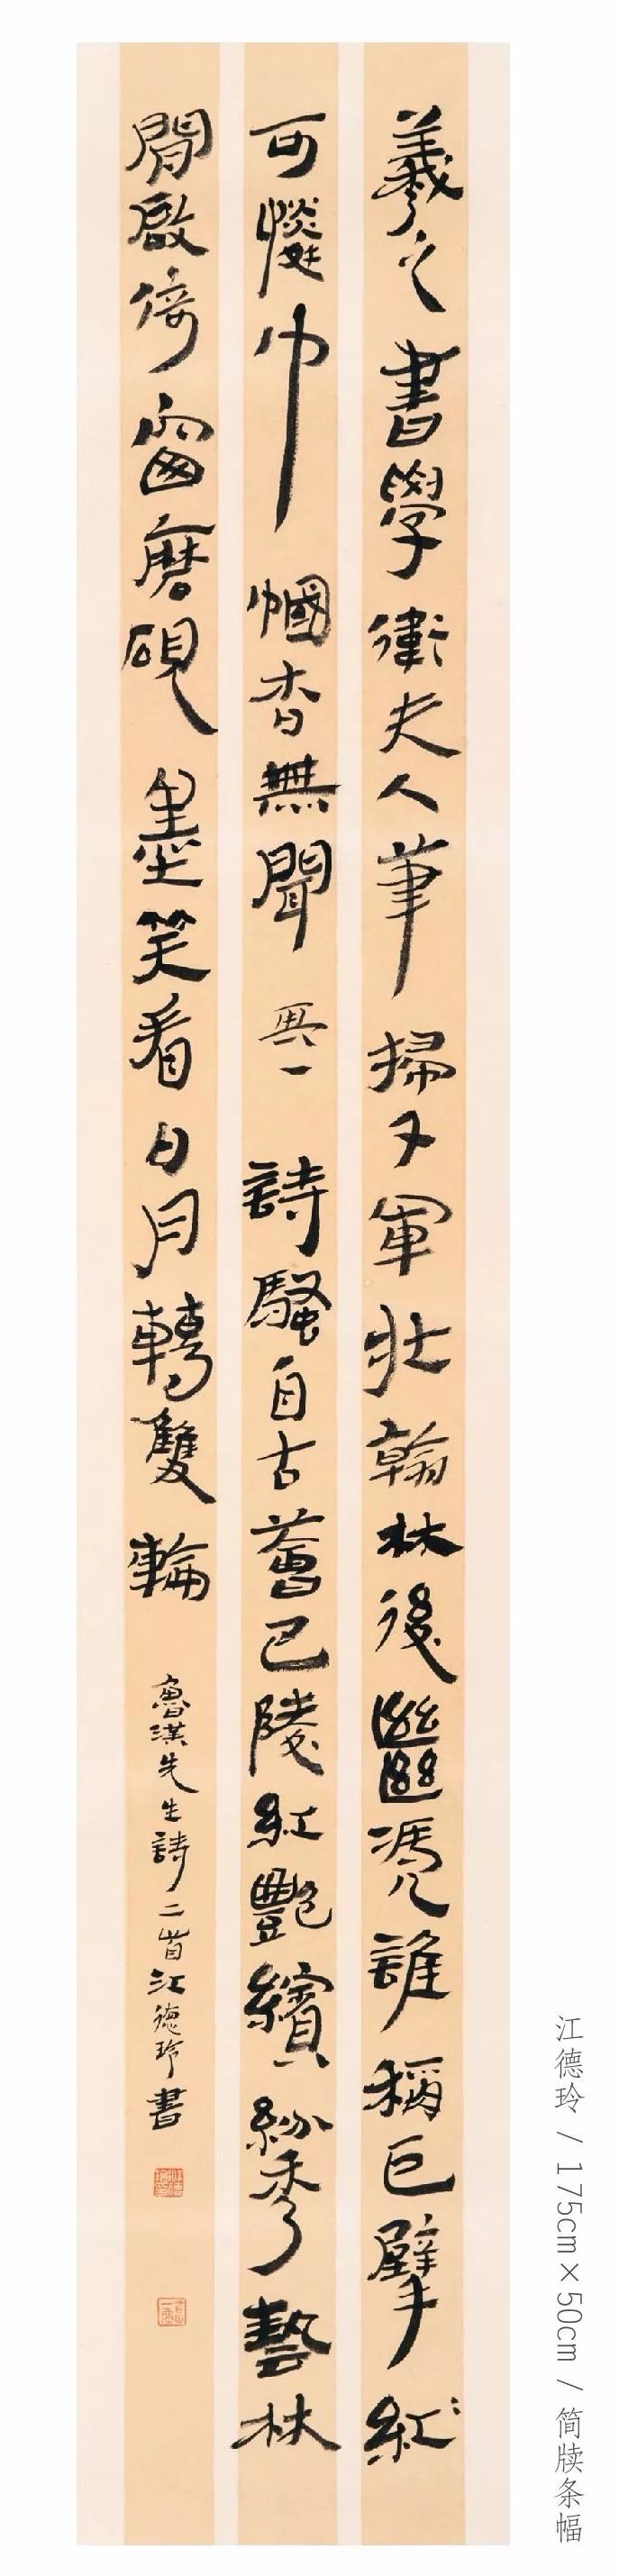 羲之書學衛夫人筆掃千軍壯翰林後繼憑誰稱巨擘紅〻
可憐巾幗杳無聞 其一 詩騷自古薈巴陵紅艷繽紛秀藝林
閒啟倚窗磨硯墨笑看日月轉雙輪
魯漢先生詩二首江德玲書
江德玲 / 175cm×50cm / 简牍条幅